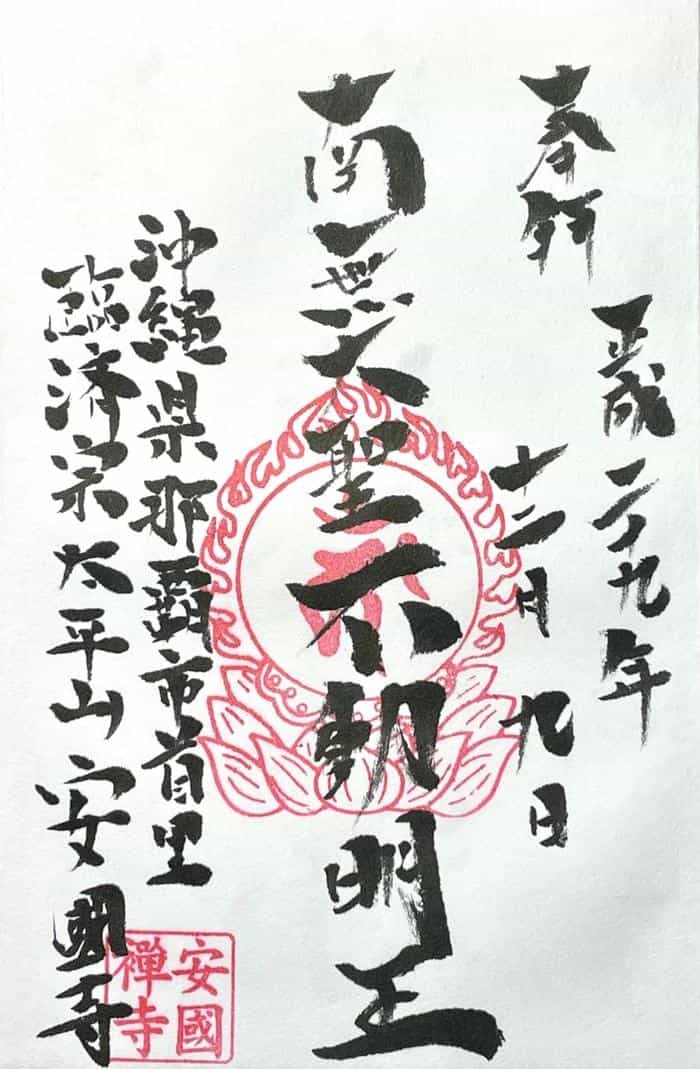 奉拝
平成二十九年
十二月九日
南無大聖不動明王
沖縄県那覇市首里
臨済宗太平山安國寺
安國
禪寺